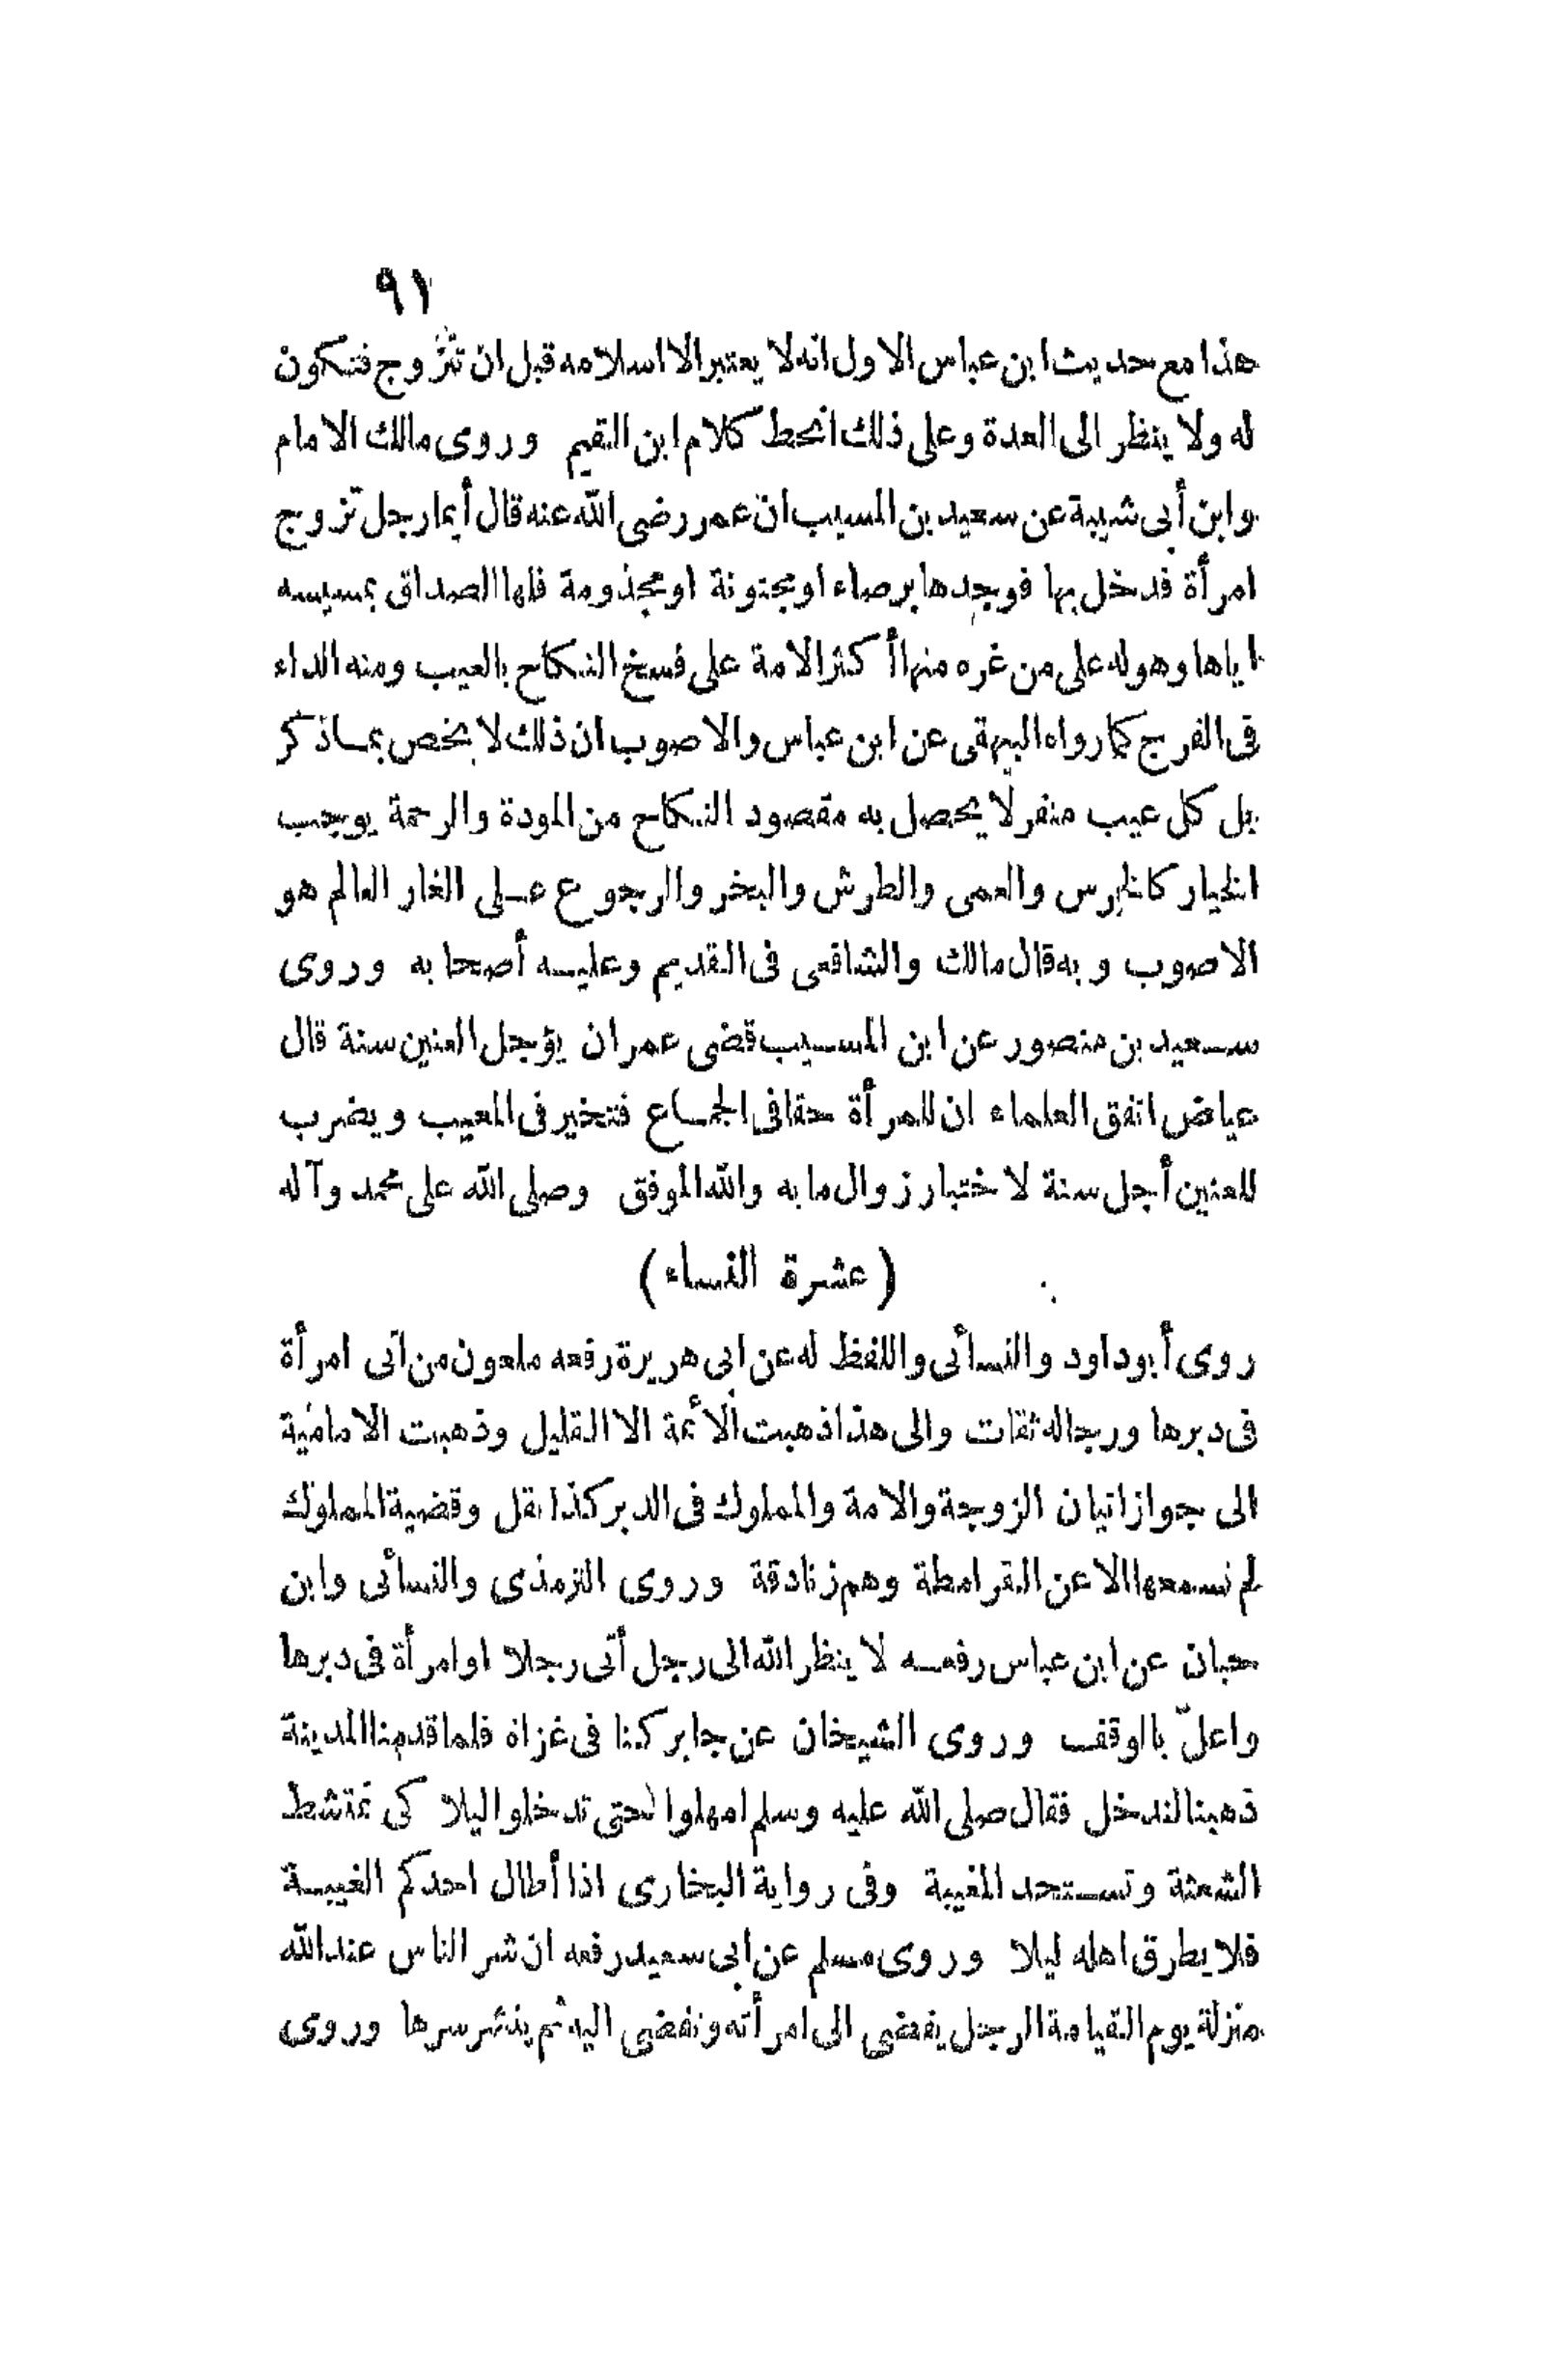 ٩١
هذا مع حديث ابن عباس الاول انه لا يعتبر الا اسلامه قبل ان تتزوج فتكون
له ولا ينظر الى العدة وعلى ذلك انحط كلام ابن القيم وروى مالك الامام
وابن أبى شيبة عن سعيد بن المسيب ان عمر رضى الله عنه قال أيما رجل تزوج
امرأة فدخل بها فوجدها برصاء او مجنونة او مجذومة فلها الصداق بمسيسه
اياها وهو له على من غره منها أكثر الامة على فسخ النكاح بالعيب ومنه الداء
فى الفرج كما رواه البيهقى عن ابن عباس والاصوب ان ذلك لا يخص بما ذكر
بل كل عيب منفر لا يحصل به مقصود النكاح من المودة والرحمة يوجب
الخيار كالخرس والعمى والطرش والبخر والرجوع على الغار العالم هو
الاصوب وبه قال مالك والشافعى فى القديم وعليه أصحابه وروى
سعيد بن منصور عن ابن المسيب قضى عمر ان يؤجل العنين سنة قال
عياض اتفق العلماء ان للمرأة حقا فى الجماع فتخير فى المعيب ويضرب
للعنين أجل سنة لاختبار زوال ما به والله الموفق وصلى الله على محمد وآله
(عشرة النساء)
روى أبو داود والنسأئى واللفظ له عن ابى هريرة رفعه ملعون من اتى امرأة
فى دبرها ورجاله ثقات والى هذا ذهبت الأئمة الا القليل وذهبت الامامية
الى جواز اتيان الزوجة والامة والمملوك فى الدبر كذا نقل وقضية المملوك
لم نسمعها الا عن القرامطة وهم زنادقة وروى الترمذى والنسأئى وابن
حبان عن ابن عباس رفعه لا ينظر الله الى رجل أتى رجلا او امرأة فى دبرها
واعلّ بالوقف وروى الشيخان عن جابر كنا فى غزاة فلما قدمنا المدينة
ذهبنا لندخل فقال صلى الله عليه وسلم امهلوا حتى تدخلوا ليلا كى تمتشط
الشعثة وتستحد المغيبة وفى رواية البخارى اذا أطال احدكم الغيبة
فلا يطرق اهله ليلا وروى مسلم عن ابى سعيد رفعه ان شر الناس عند الله
منزلة يوم القيامة الرجل يفضى الى امرأته وتفضى اليه ثم ينشر سرها وروى